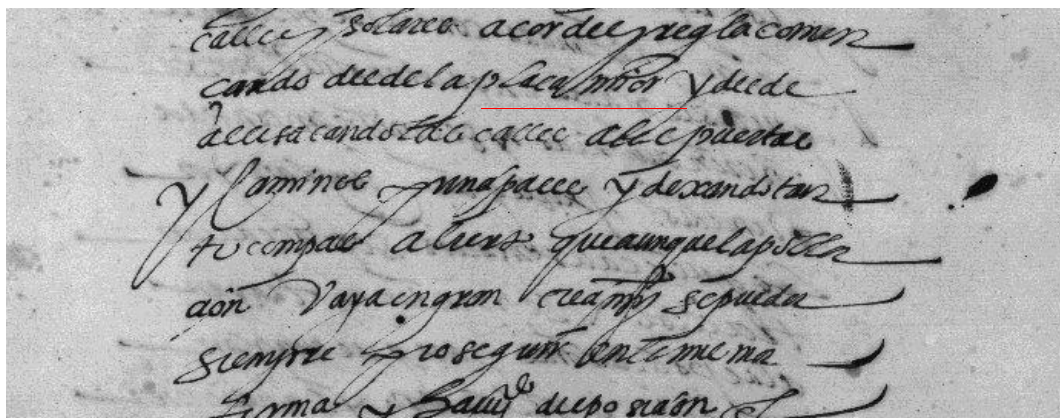 calles y solares a cordel y regla comen
cando desde la plaça mior y desde
alli sacando las calles a las puertas
y caminos prinçipales y dexando tan
to compas abierto que aunque la pobla
çion vaya en gran creçimio se pueda
siempre proseguir en la misma
forma y haviedo disposiçion